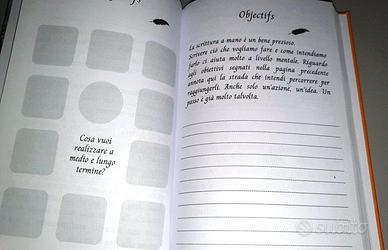 Cosa vuoi
realizzare a
medio e lungo
termine?
Objectifs
La scrittura a mano è un bene prezioso.
Scrivere ciò che vogliamo fare e come intendiamo
farlo ci aiuta molto a livello mentale. Riguardo
agli obiettivi segnati nella pagina precedente
annota qui la strada che intendi percorrere per
raggiungerli. Anche solo un'azione, un'idea. Un
passo è già molto talvolta.
subito